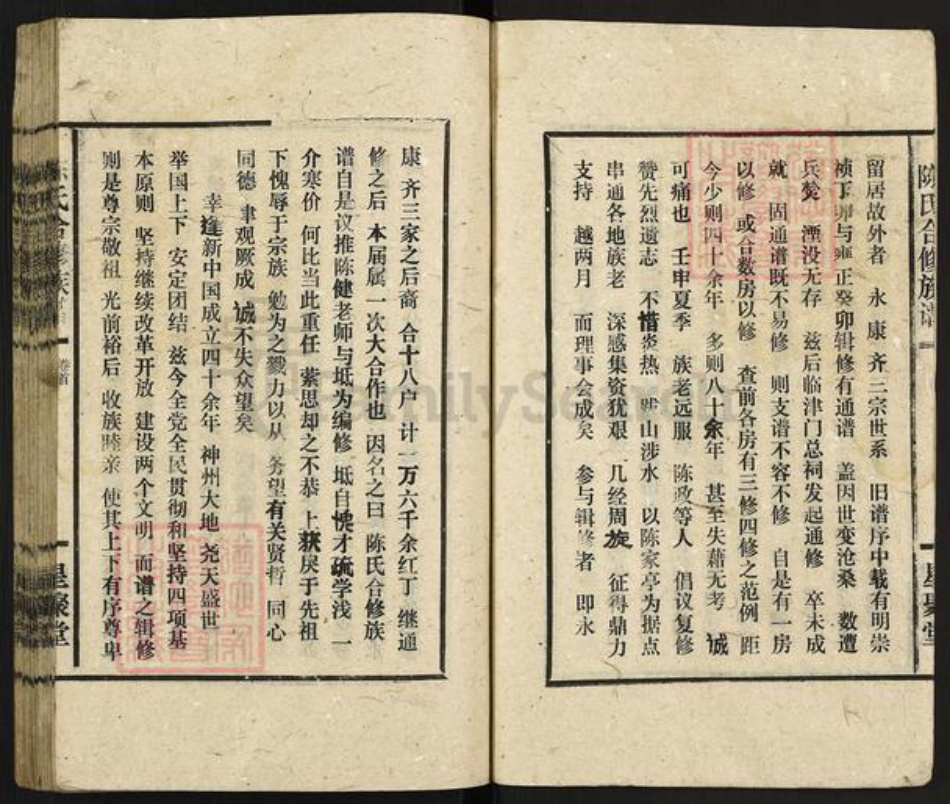 陈氏合修族谱
星聚堂
留居故外者 永 康 齐 三宗世系 旧谱序中载有明崇
祯丁卯与雍正癸卯辑修有通谱 盖因世变沧桑 数遭
兵燹 湮没无存 兹后临津门总祠发起通修 卒未成
就 固通谱既不易修 则支谱不容不修 自是有一房
以修 或合数房以修 查前各房有三修四修之范例 距
今少则四十余年 多则八十余年 甚至失藉无考 诚
可痛也 壬申夏季 族老远服 陈政等人 倡议复修
赞先烈遗志 不惜炎热 跋山涉水 以陈家亭为据点
串通各地族老 深感集资犹艰 几经周族 征得鼎力
支持 越两月 而理事会成矣 参与辑修者 即永
康 齐三家之后裔 合十八户 计一万六千余红丁 继通
修之后 本届属一次大合作也 因名之曰 陈氏合修族
谱自是议推陈健老师与坻为编修 坻自惭才疏学浅 一
介寒价 何比当此重任 萦思却之不恭 上获戾于先祖
下愧辱于宗族 勉为之戮力以从 务望有关贤哲 同心
同德 聿观厥成 诚不失众望矣
幸逢新中国成立四十余年 神州大地 尧天盛世
举国上下 安定团结 兹今全党全民贯彻和坚持四项基
本原则 坚持继续改革开放 建设两个文明 而谱之辑修
则是尊宗敬祖 光前裕后 收族睦亲 使其上下有序尊卑
陈氏合修族
卷首
星聚堂
FamilySearch